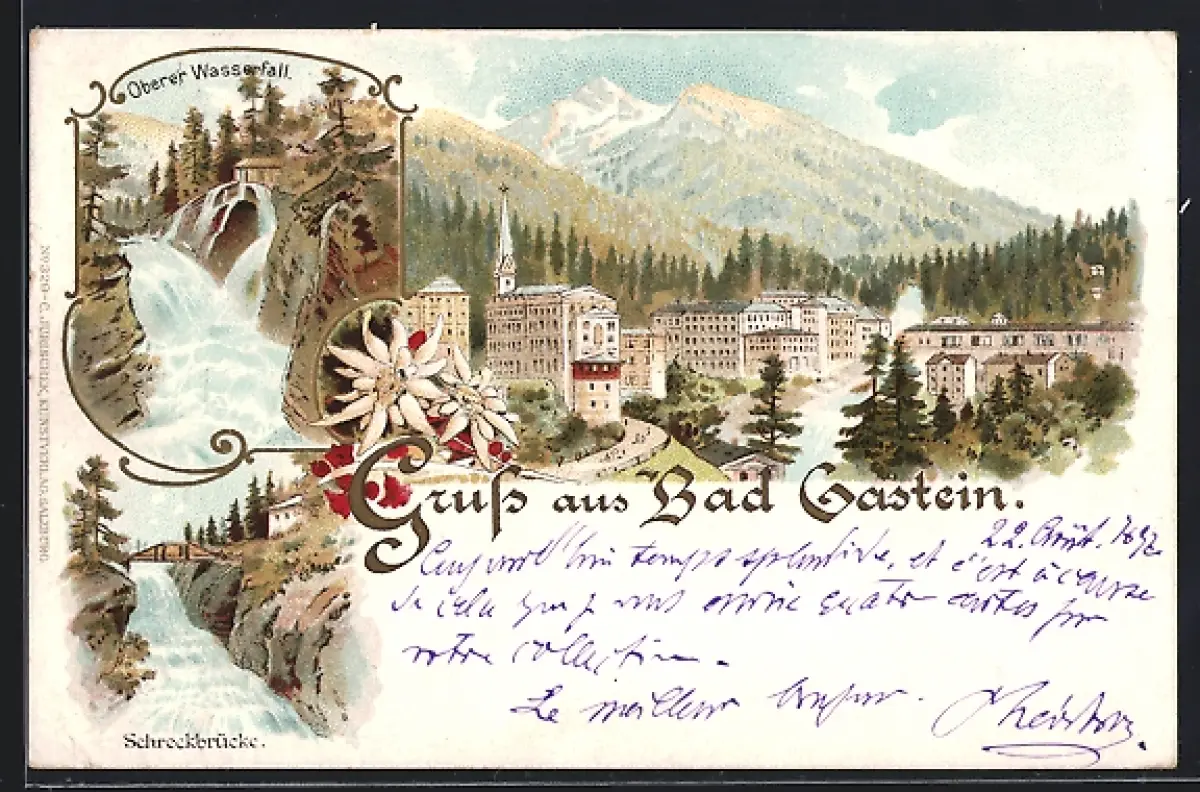 Oberer Wasserfall.
No 329 - C. JURISCHEK, KUNSTVERLAG, SALZBURG.
Gruß aus Bad Gastein.
22 Août. 1897
temps splendide, et c'est à cause
de cela que je vous envoie quatre cartes pour
votre collection.
Le meilleur bonjour.
Schreckbrücke.